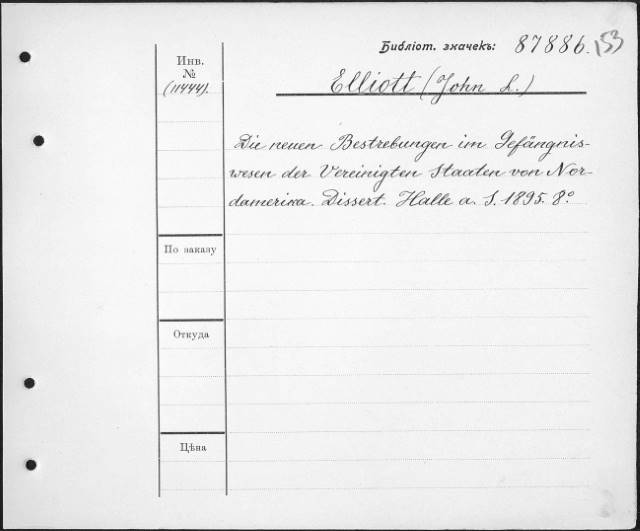 Библіот. значекъ: 87886. 153
Инв.
№
(11444).
Elliott (John L.)
Die neuen Bestrebungen im Gefängnis-
wesen der Vereinigten Staaten von Nor-
damerika. Dissert. Halle a. S. 1895. 8°
По заказу
Откуда
Цѣна